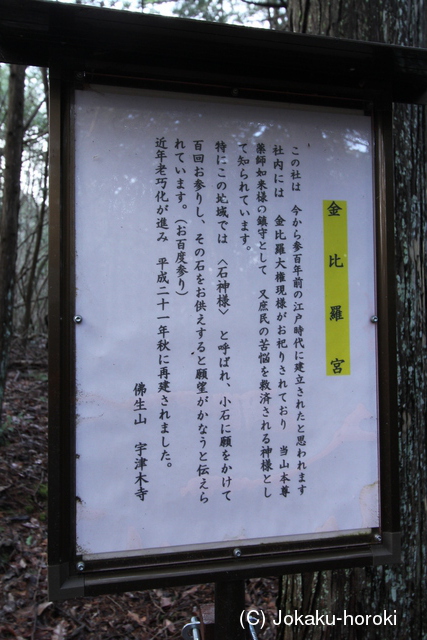 金比羅宮
この社は 今から参百年前の江戸時代に建立されたと思われます
社内には 金比羅大権現様がお祀りされており 当山本尊
薬師如来様の鎮守として 又庶民の苦悩を救済される神様とし
て知られています。
特にこの地域では 〈石神様〉 と呼ばれ、小石に願をかけて
百回お参りし、その石をお供えすると願望がかなうと伝えら
れています。(お百度参り)
近年老巧化が進み 平成二十一年秋に再建されました。
佛生山 宇津木寺
(C) Jokaku-horoki